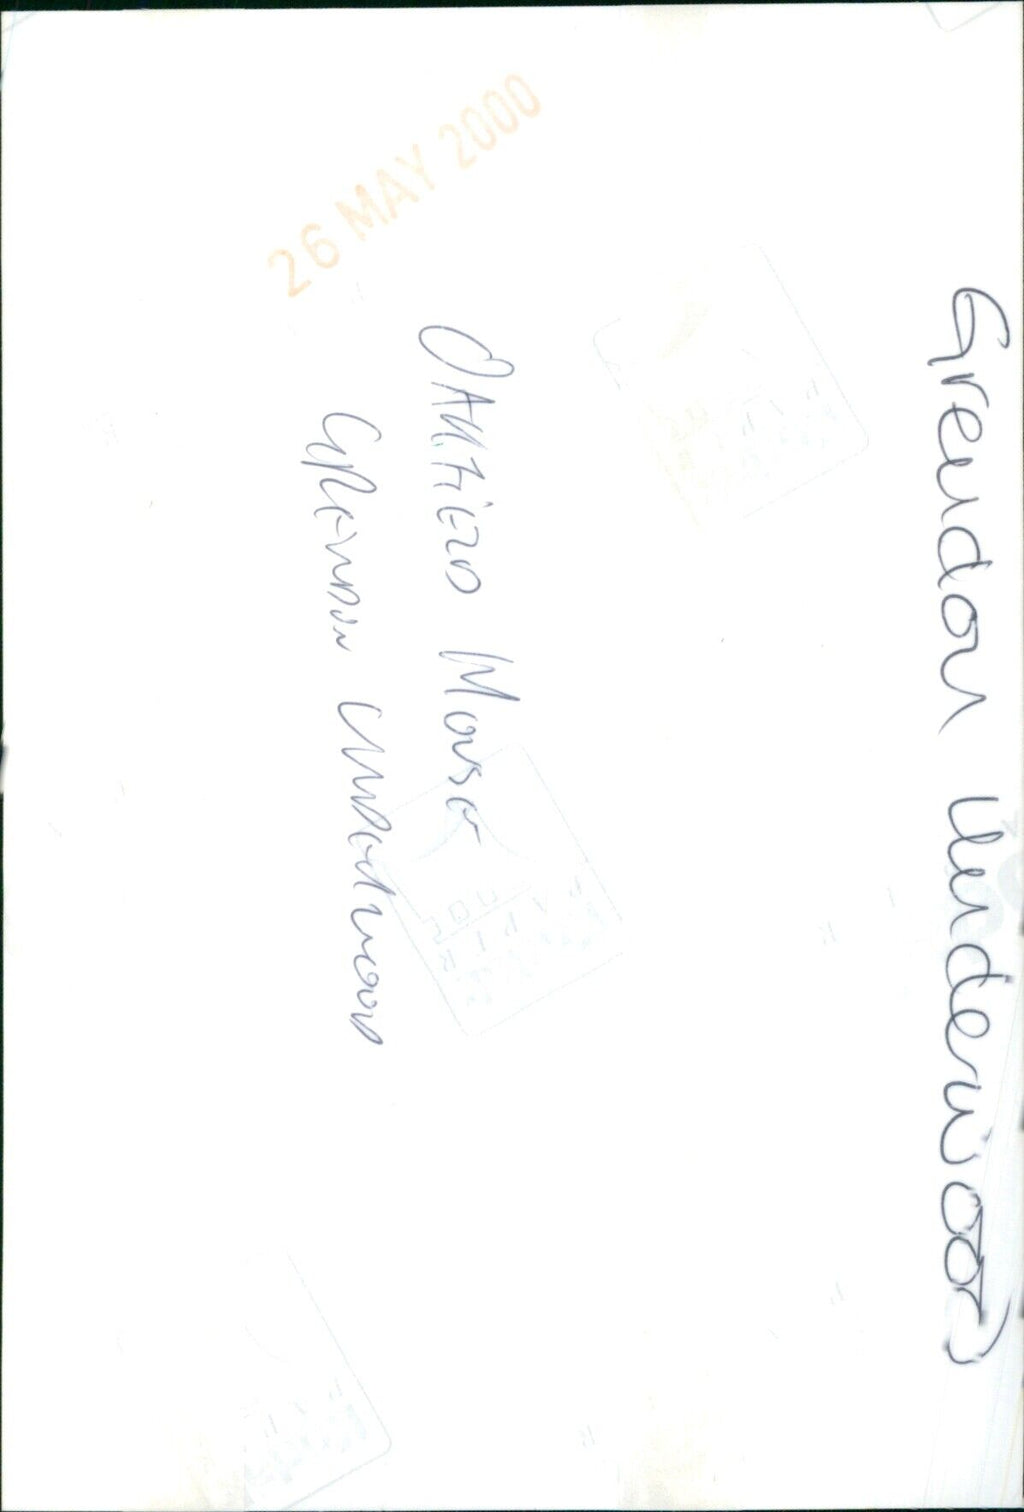 Grendon Underwood
26 MAY 2000
OAKFIELD HOUSE
GRENDON UNDERWOOD